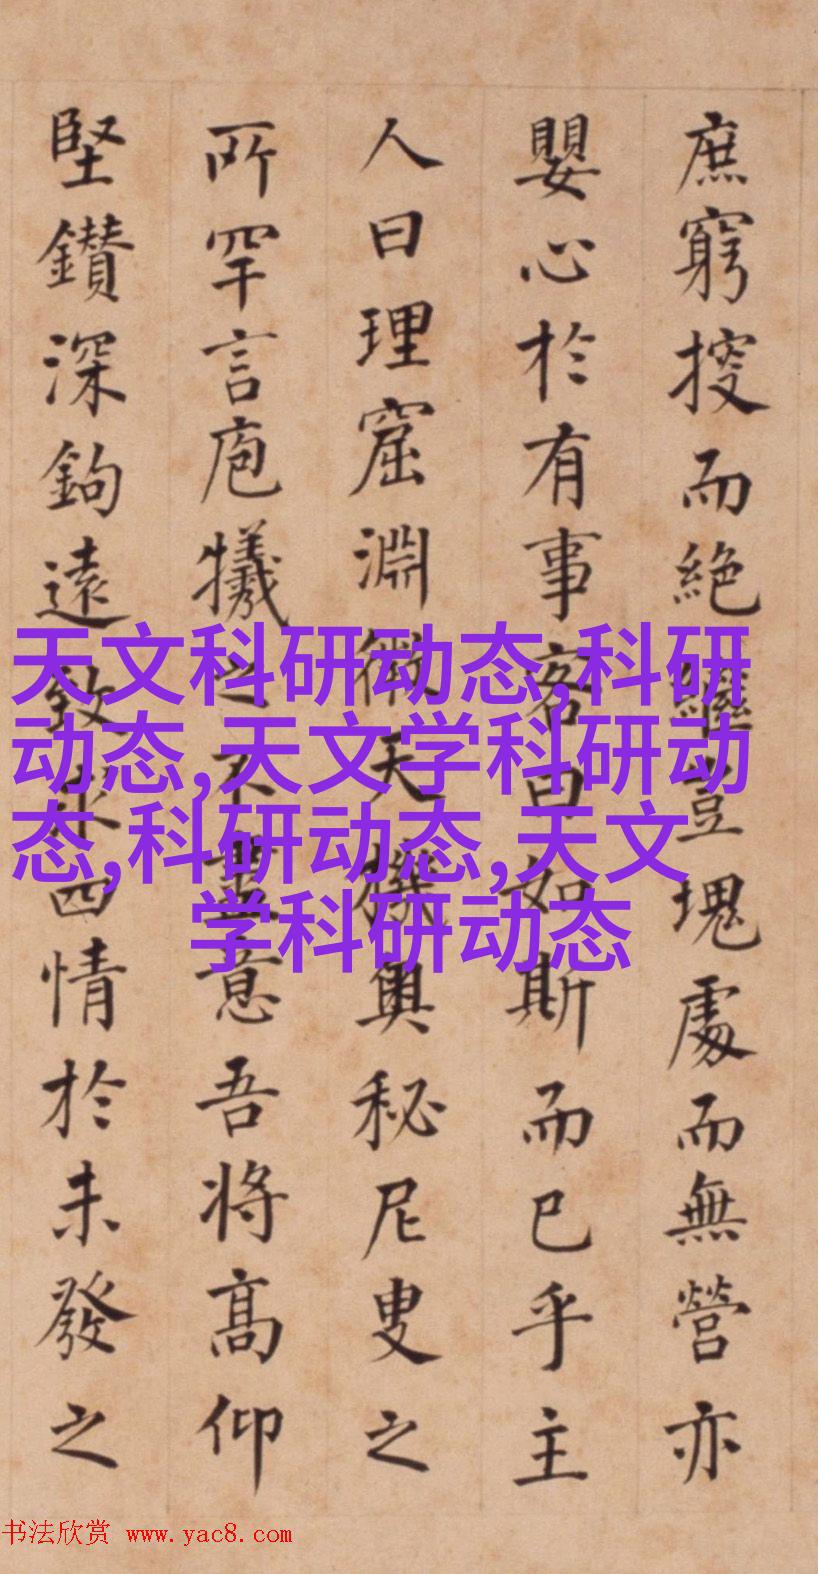 庶窮挍而絕羅豈塊處而無營亦
嬰心於有事客曰如斯而已乎主
人曰理窟淵微天機奧秘尼叟之
所罕言庖犧之不盡意吾將高仰
堅鑽深鉤遠致求四情於未發之
天文科研动态,科研
动态,天文学科研动
态,科研动态,天文
学科研动态
书法欣赏 www.yac8.com